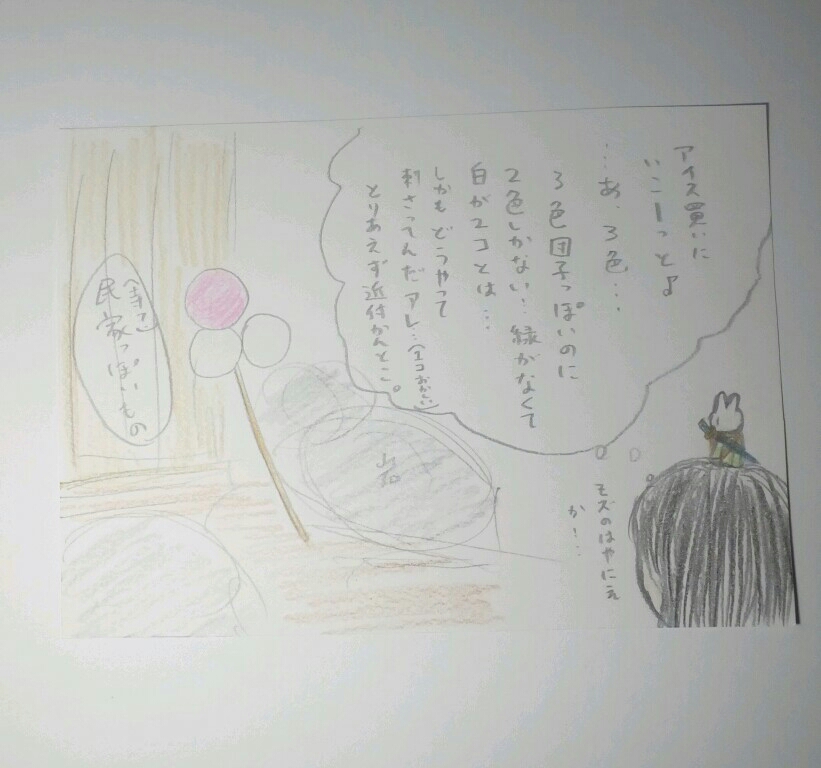 アイス買いに
いこーっと♪
…あ、3色…
3色団子っぽいのに
2色しかない!緑がなくて
白が2コとは…
しかもどうやって
刺さってんだアレ…
とりあえず近付かんとこ。
モズのはやにえ
か!…
岩
民家っぽいもの